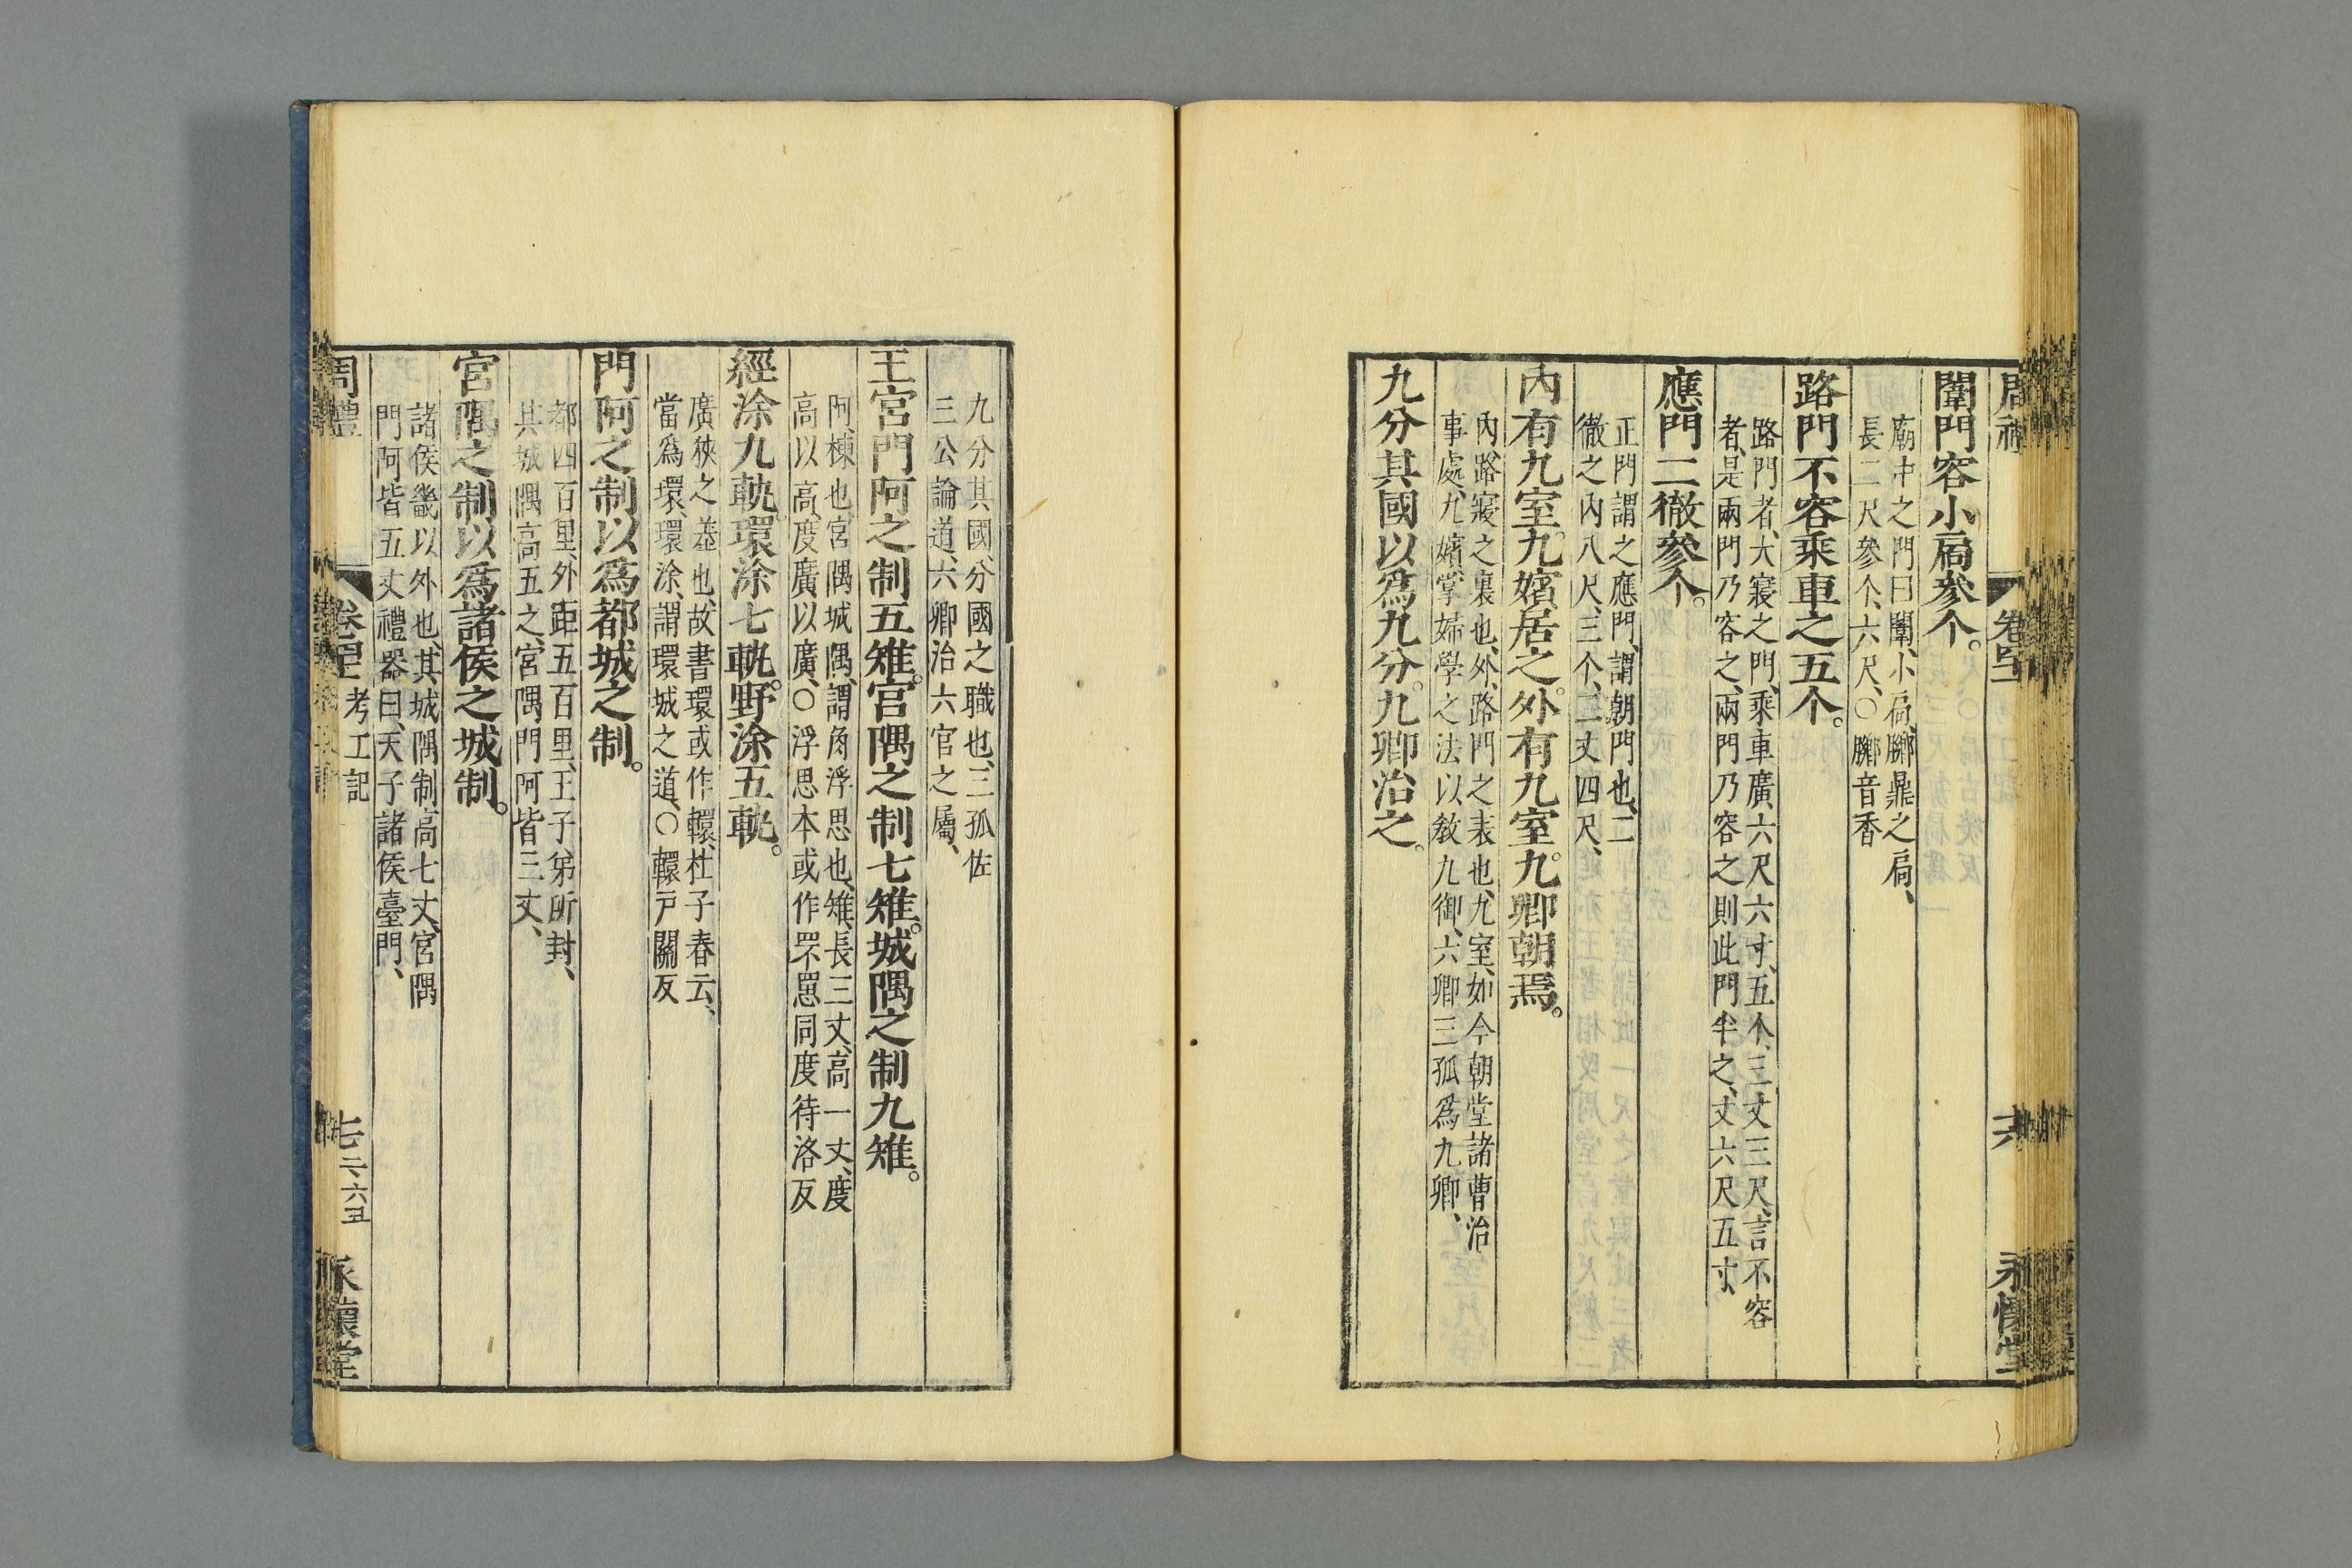 闈門容小扃參个。
廟中之門曰闈、小扃、膷鼎之扃、
長二尺參个、六尺、○膷音香
路門不容乘車之五个。
路門者、大寢之門、乘車廣六尺六寸、五个、三丈三尺、言不容
者、是兩門乃容之、兩門乃容之則此門半之、丈六尺五寸、
應門二徹參个。
正門謂之應門、謂朝門也、二
徹之內八尺、三个、二丈四尺、
內有九室。九嬪居之。外有九室。九卿朝焉。
內、路寢之裏也、外、路門之表也、九室、如今朝堂諸曹治
事處、九嬪掌婦學之法以敎九御、六卿三孤爲九卿、
九分其國以爲九分。九卿治之。
九分其國、分國之職也、三孤佐
三公論道、六卿治六官之屬、
王宮門阿之制五雉。宮隅之制七雉。城隅之制九雉。
阿、棟也、宮隅城隅、謂角浮思也、雉、長三丈、高一丈、度
高以高、度廣以廣、○浮思本或作罘罳同度待洛反
經涂九軌。環涂七軌。野涂五軌。
廣狹之差也、故書環或作轘、杜子春云、
當爲環、環涂、謂環城之道、○轘戶關反
門阿之制以爲都城之制。
都四百里、外距五百里、王子弟所封、
其城隅高五之、宮隅門阿皆三丈、
宮隅之制以爲諸侯之城制。
諸侯畿以外也、其城隅制高七丈、宮隅
門阿皆五丈禮器曰、天子諸侯臺門、
周禮
考工記
七
二、六五
永懷堂